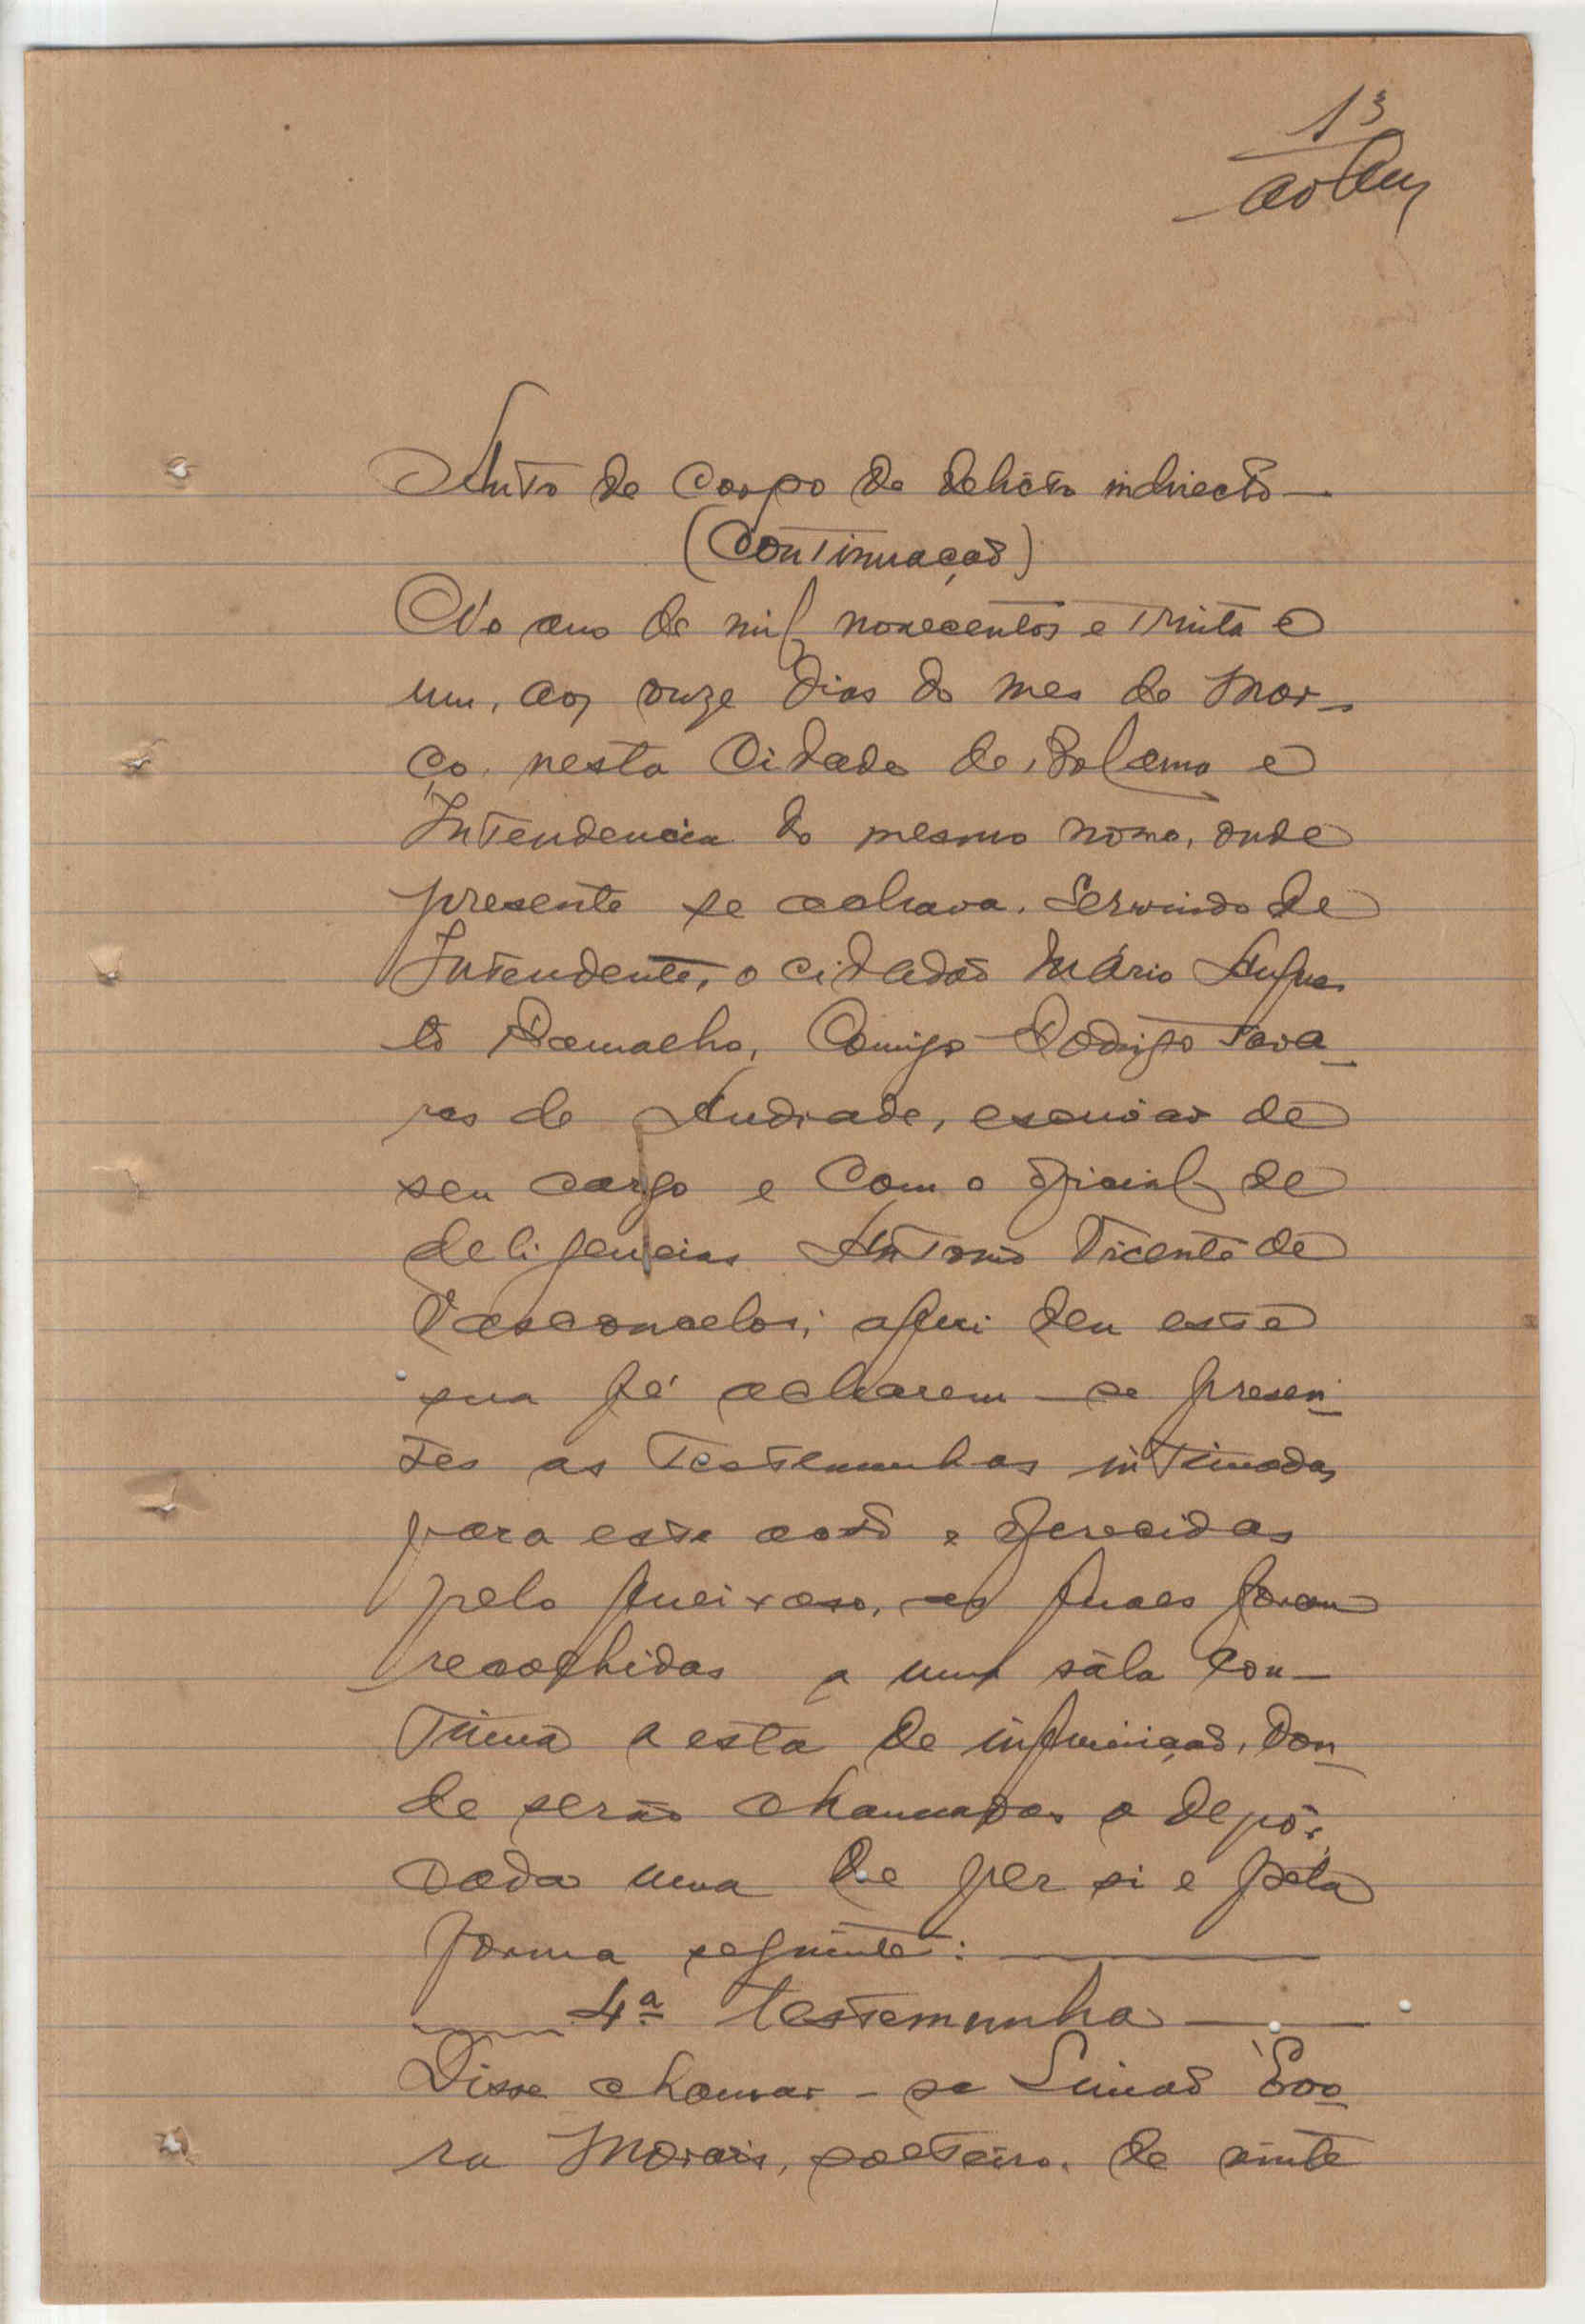 13
Auto de corpo de delicto indirecto —
(Continuação)
No ano de mil novecentos e trinta e
um, aos onze dias do mes de Mar-
ço, nesta Cidade de Bolama e
Intendencia do mesmo nome, onde
presente se achava, servindo de
Intendente, o cidadão Mário Augus
to Ramalho, Comigo Rodrigo Tava-
res de Andrade, escrivão de
seu cargo e com o oficial de
deligencias Antonio Vicente de
Vasconcelos; aqui deu este
sua fé acharem-se presen-
tes as testemunhas intimadas
para este acto e oferecidas
pelo queixoso, as quaes foram
recolhidas a uma sála con-
tinua a esta de inquirição, don-
de serão chamadas a depôr,
cada uma de per si e pela
forma seguinte: ———
—— 4ª testemunha ——
Disse chamar-se Simão Évo-
ra Morais, solteiro, de vinte